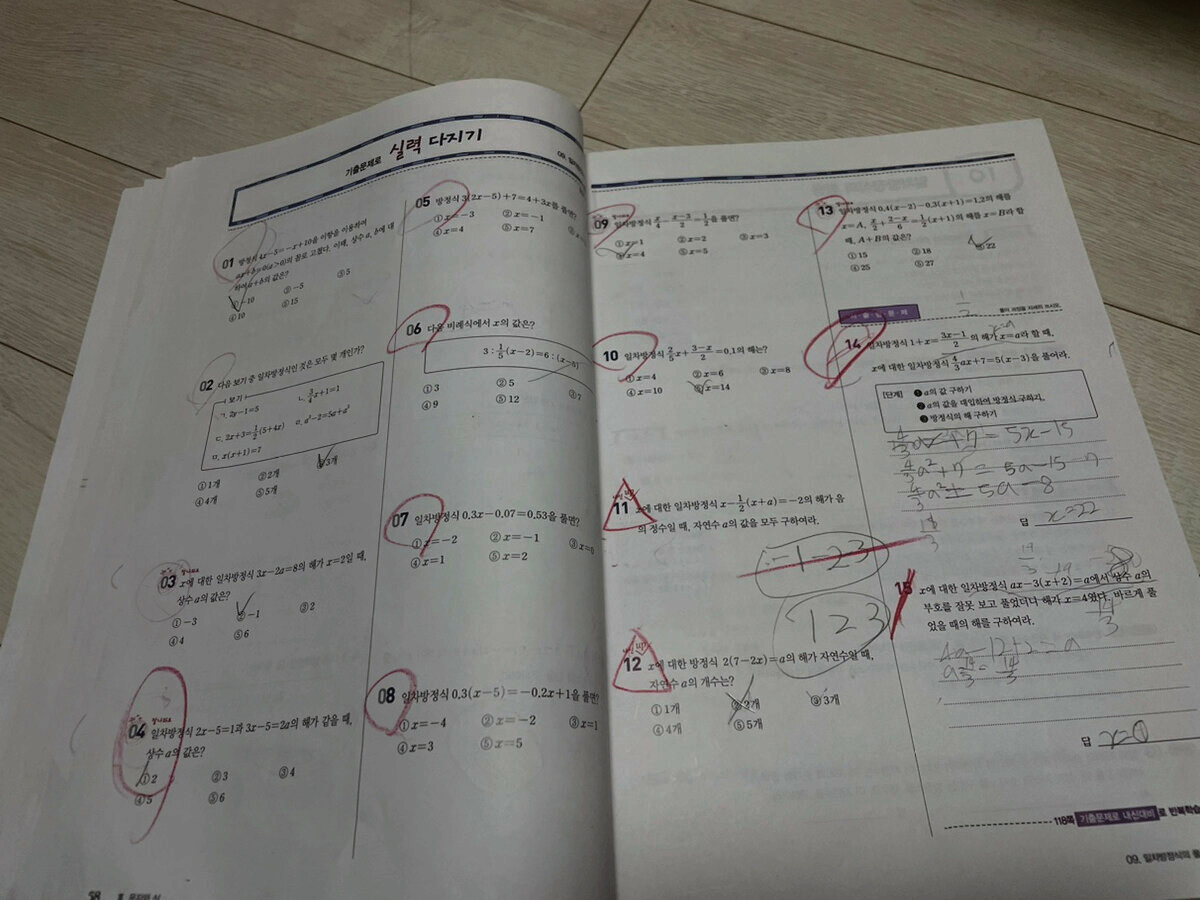 기출문제로 실력 다지기
01 방정식 4x-5=-x+10을 이항을 이용하여
ax+b=0(a>0)의 꼴로 고쳤다. 이때, 상수 a, b에 대
하여 a+b의 값은?
①-10 ②-5 ③5
④10 ⑤15
02 다음 보기 중 일차방정식인 것은 모두 몇 개인가?
보기
ㄱ. 2y-1=5 ㄴ. 3/4x+1=1
ㄷ. 2x+3=1/2(5+4x) ㄹ. a²-2=5a+a²
ㅁ. x(x+1)=7
①1개 ②2개 ③3개
④4개 ⑤5개
03 x에 대한 일차방정식 3x-2a=8의 해가 x=2일 때,
상수 a의 값은?
①-3 ②-1 ③2
④4 ⑤6
04 일차방정식 2x-5=1과 3x-5=2a의 해가 같을 때,
상수 a의 값은?
①2 ②3 ③4
④5 ⑤6
58
05 방정식 3(2x-5)+7=4+3x를 풀면?
①x=-3 ②x=-1
④x=4 ⑤x=7
06 다음 비례식에서 x의 값은?
3 : 1/5(x-2)=6 : (x-5)
①3 ②5 ③7
④9 ⑤12
07 일차방정식 0.3x-0.07=0.53을 풀면?
①x=-2 ②x=-1 ③x=0
④x=1 ⑤x=2
08 일차방정식 0.3(x-5)=-0.2x+1을 풀면?
①x=-4 ②x=-2 ③x=1
④x=3 ⑤x=5
09 일차방정식 x/4-(x-3)/2=1/2을 풀면?
①x=1 ②x=2 ③x=3
④x=4 ⑤x=5
10 일차방정식 2/5x+(3-x)/2=0.1의 해는?
①x=4 ②x=6 ③x=8
④x=10 ⑤x=14
11 x에 대한 일차방정식 x-1/2(x+a)=-2의 해가 음
의 정수일 때, 자연수 a의 값을 모두 구하여라.
1 2 3
12 x에 대한 방정식 2(7-2x)=a의 해가 자연수일 때,
자연수 a의 개수는?
①1개 ②2개 ③3개
④4개 ⑤5개
13 일차방정식 0.4(x-2)-0.3(x+1)=1.2의 해를
x=A, x/2+(2-x)/6=1/2(x+1)의 해를 x=B라 할
때, A+B의 값은?
①15 ②18 ③22
④25 ⑤27
1/2
풀이 과정을 자세히 쓰시오.
x=a
14 일차방정식 1+x=(3x-1)/2의 해가 x=a라 할 때,
x에 대한 일차방정식 4/3ax+7=5(x-3)을 풀어라.
[단계] ❶ a의 값 구하기
❷ a의 값을 대입하여 방정식 구하기
❸ 방정식의 해 구하기
4/3ax+7=5x-15
4/3a²+7=5a-15-7
답 x=22
15 x에 대한 일차방정식 ax-3(x+2)=a에서 상수 a의
부호를 잘못 보고 풀었더니 해가 x=4였다. 바르게 풀
었을 때의 해를 구하여라.
답
118쪽 기출문제로 내신대비 로 반복학습
09. 일차방정식의